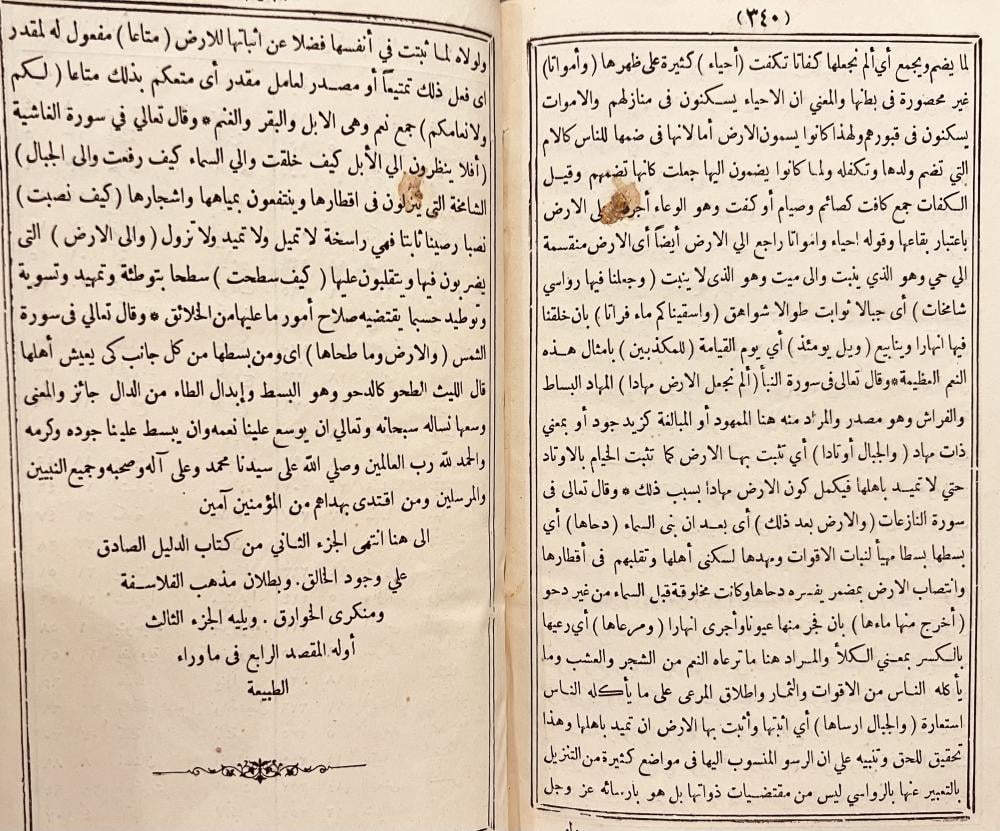 (٣٤٠)
لما يضم ويجمع أي ألم نجعلها كفاتا تكفت (أحياء) كثيرة على ظهرها (وأمواتا)
غير محصورة فى بطنها والمعني ان الاحياء يسكنون فى منازلهم والاموات
يسكنون فى قبورهم ولهذا كانوا يسمون الارض أما لانها فى ضمها للناس كالام
التي تضم ولدها وتكفله ولما كانوا يضمون اليها جعلت كانها تضمهم وقيل
الكفات جمع كافت كصائم وصيام أو كفت وهو الوعاء على الارض
باعتبار بقاعها وقوله احياء وامواتا راجع الي الارض أيضاً أى الارض منقسمة
الي حي وهو الذي ينبت والى ميت وهو الذى لا ينبت (وجعلنا فيها رواسي
شامخات) أى جبالا ثوابت طوالا شواهق (واسقيناكم ماء فراتا) بان خلقنا
فيها انهارا وينابيع (ويل يومئذ) أي يوم القيامة (للمكذبين) بامثال هذه
النعم العظيمة*وقال تعالى فى سورة النبأ (ألم نجعل الارض مهادا) المهاد البساط
والفراش وهو مصدر والمراد منه هنا الممهود أو المبالغة كزيد جود أو بمعني
ذات مهاد (والجبال أوتادا) أي تثبت بها الارض كما تثبت الخيام بالاوتاد
حتي لا تميد باهلها فيكمل كون الارض مهادا بسبب ذلك * وقال تعالى فى
سورة النازعات (والارض بعد ذلك) أى بعد ان بنى السماء (دحاها) أي
بسطها بسطا مهيأ لنبات الاقوات ومهدها لسكنى أهلها وتقلبهم فى أقطارها
وانتصاب الارض بمضمر يفسره دحاها وكانت مخلوقة قبل السماء من غير دحو
(أخرج منها ماءها) بان فجر منها عيونا وأجرى انهارا (ومرعاها) أي رعيها
بالكسر بمعني الكلأ والمراد هنا ما ترعاه النعم من الشجر والعشب وما
يأكله الناس من الاقوات والثمار واطلاق المرعى على ما يأكله الناس
استعارة (والجبال ارساها) أي اثبتها وأثبت بها الارض ان تميد باهلها وهذا
تحقيق للحق وتنبيه علي ان الرسو المنسوب اليها فى مواضع كثيرة من التنزيل
بالتعبير عنها بالرواسي ليس من مقتضيات ذواتها بل هو بارسائه عز وجل
ولولاه لما ثبتت في أنفسها فضلا عن اثباتها للارض (متاعا) مفعول له لمقدر
اى فعل ذلك تمتيعاً أو مصدر لعامل مقدر أى متعكم بذلك متاعا (لكم
ولانعامكم) جمع نعم وهى الابل والبقر والغنم * وقال تعالي في سورة الغاشية
(أفلا ينظرون الي الأبل كيف خلقت والي السماء كيف رفعت والى الجبال)
الشامخة التى ينزلون فى اقطارها وينتفعون بمياهها واشجارها (كيف نصبت)
نصبا رصينا ثابتا فهي راسخة لا تميل ولا تميد ولا تزول (والى الارض) التى
يضربون فيها ويتقلبون عليها (كيف سطحت) سطحا بتوطئة وتمهيد وتسوية
وتوطيد حسبما يقتضيه صلاح أمور ما عليها من الخلائق * وقال تعالي فى سورة
الشمس (والارض وما طحاها) اى ومن بسطها من كل جانب كى يعيش أهلها
قال الليث الطحو كالدحو وهو البسط وإبدال الطاء من الدال جائز والمعنى
وسعها نساله سبحانه وتعالي ان يوسع علينا نعمه وان يبسط علينا جوده وكرمه
والحمد لله رب العالمين وصلي الله على سيدنا محمد وعلى آله وصحبه وجميع النبيين
والمرسلين ومن اقتدى بهداهم من المؤمنين آمين
الى هنا انتهى الجزء الثانى من كتاب الدليل الصادق
علي وجود الخالق. وبطلان مذهب الفلاسفة
ومنكرى الخوارق. ويليه الجزء الثالث
أوله المقصد الرابع فى ما وراء
الطبيعة